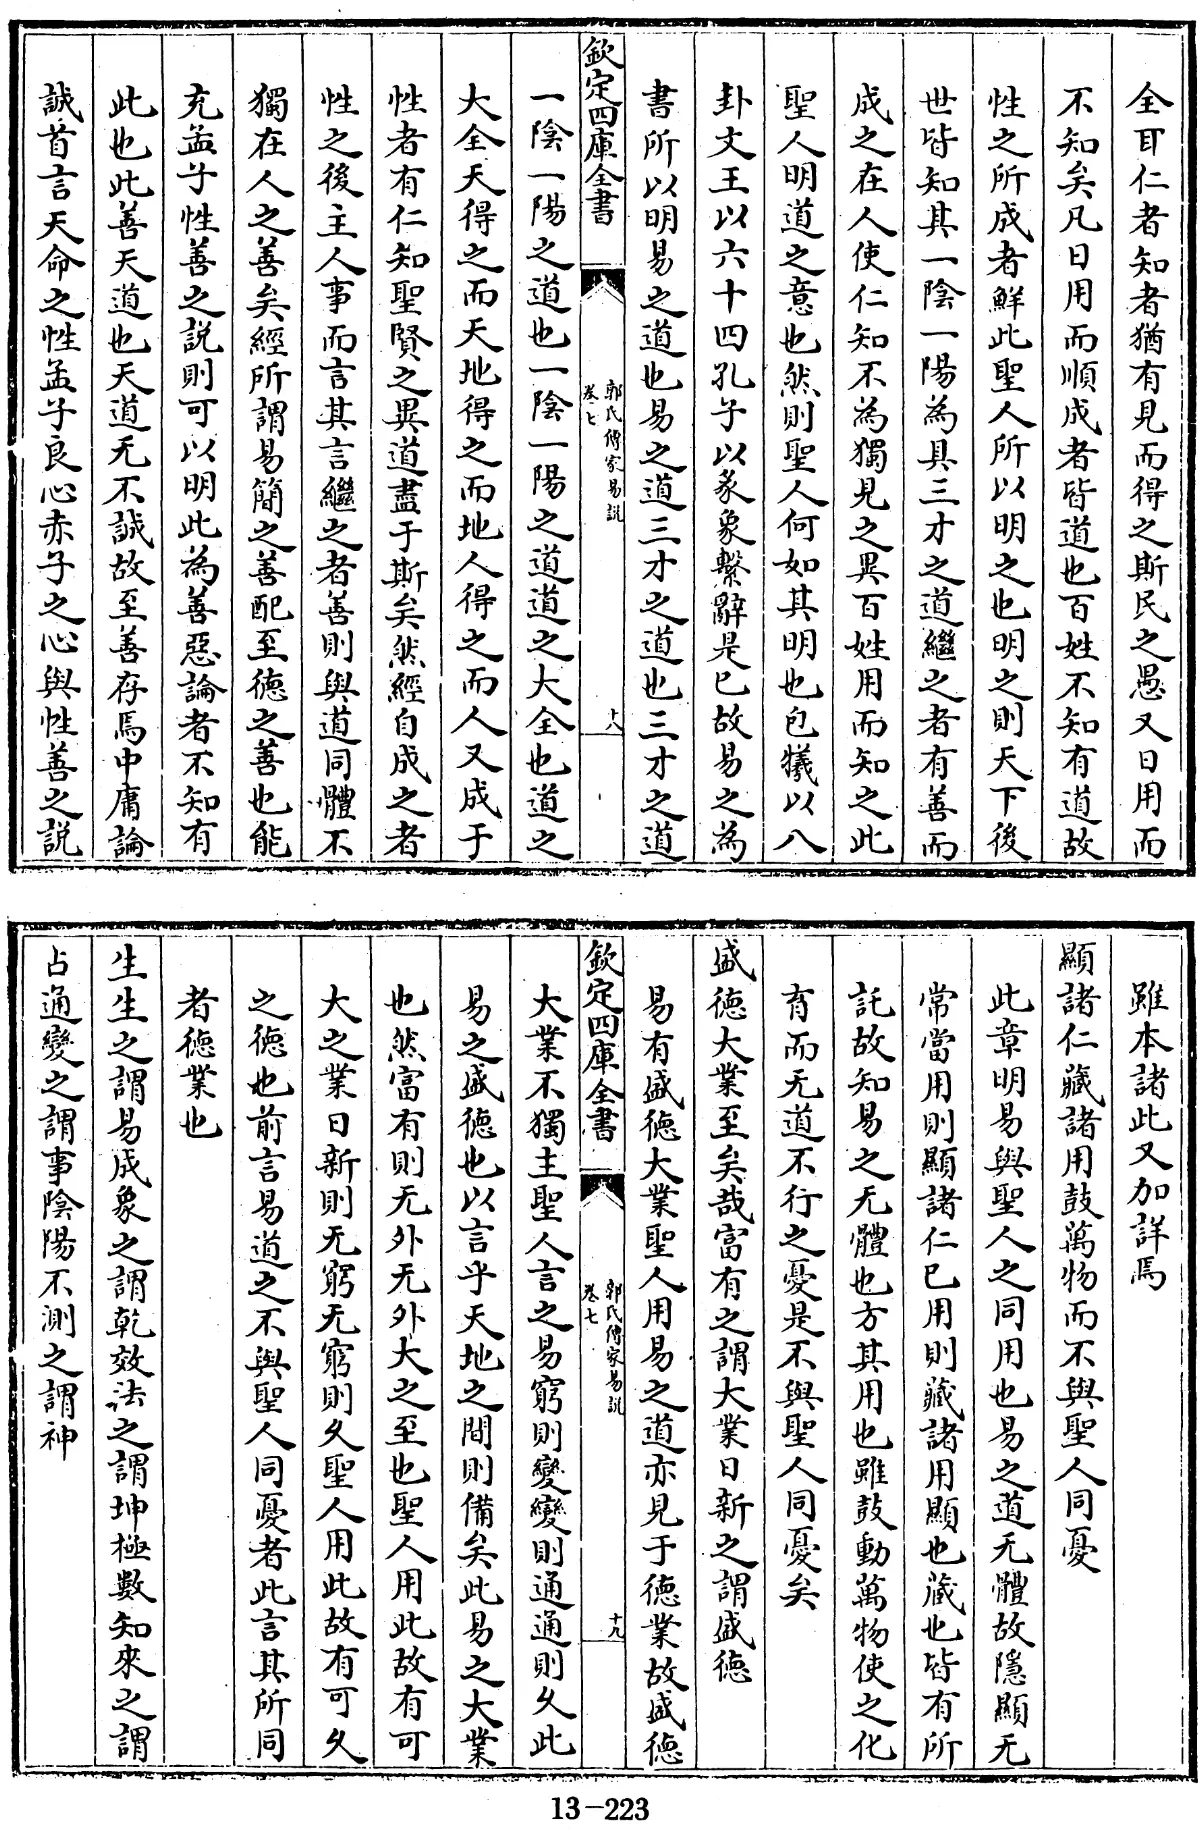 全耳仁者知者猶有見而得之斯民之愚又日用而
不知矣凡日用而順成者皆道也百姓不知有道故
性之所成者鮮此聖人所以明之也明之則天下後
世皆知其一陰一陽為具三才之道繼之者有善而
成之在人使仁知不為獨見之異百姓用而知之此
聖人明道之意也然則聖人何如其明也包犧以八
卦文王以六十四孔子以彖象繫辭是已故易之為
書所以明易之道也易之道三才之道也三才之道
欽定四庫全書
郭氏傳家易說
卷七
十八
一陰一陽之道也一陰一陽之道道之大全也道之
大全天得之而天地得之而地人得之而人又成于
性者有仁知聖賢之異道盡于斯矣然經自成之者
性之後主人事而言其言繼之者善則與道同體不
獨在人之善矣經所謂易簡之善配至德之善也能
充孟子性善之說則可以明此為善惡論者不知有
此也此善天道也天道无不誠故至善存焉中庸論
誠首言天命之性孟子良心赤子之心與性善之說
雖本諸此又加詳焉
顯諸仁藏諸用鼓萬物而不與聖人同憂
此章明易與聖人之同用也易之道无體故隱顯无
常當用則顯諸仁已用則藏諸用顯也藏也皆有所
託故知易之无體也方其用也雖鼓動萬物使之化
育而无道不行之憂是不與聖人同憂矣
盛德大業至矣哉富有之謂大業日新之謂盛德
易有盛德大業聖人用易之道亦見于德業故盛德
欽定四庫全書
郭氏傳家易說
卷七
十九
大業不獨主聖人言之易窮則變變則通通則久此
易之盛德也以言乎天地之間則備矣此易之大業
也然富有則无外无外大之至也聖人用此故有可
大之業日新則无窮无窮則久聖人用此故有可久
之德也前言易道之不與聖人同憂者此言其所同
者德業也
生生之謂易成象之謂乾效法之謂坤極數知來之謂
占通變之謂事陰陽不測之謂神
13-223